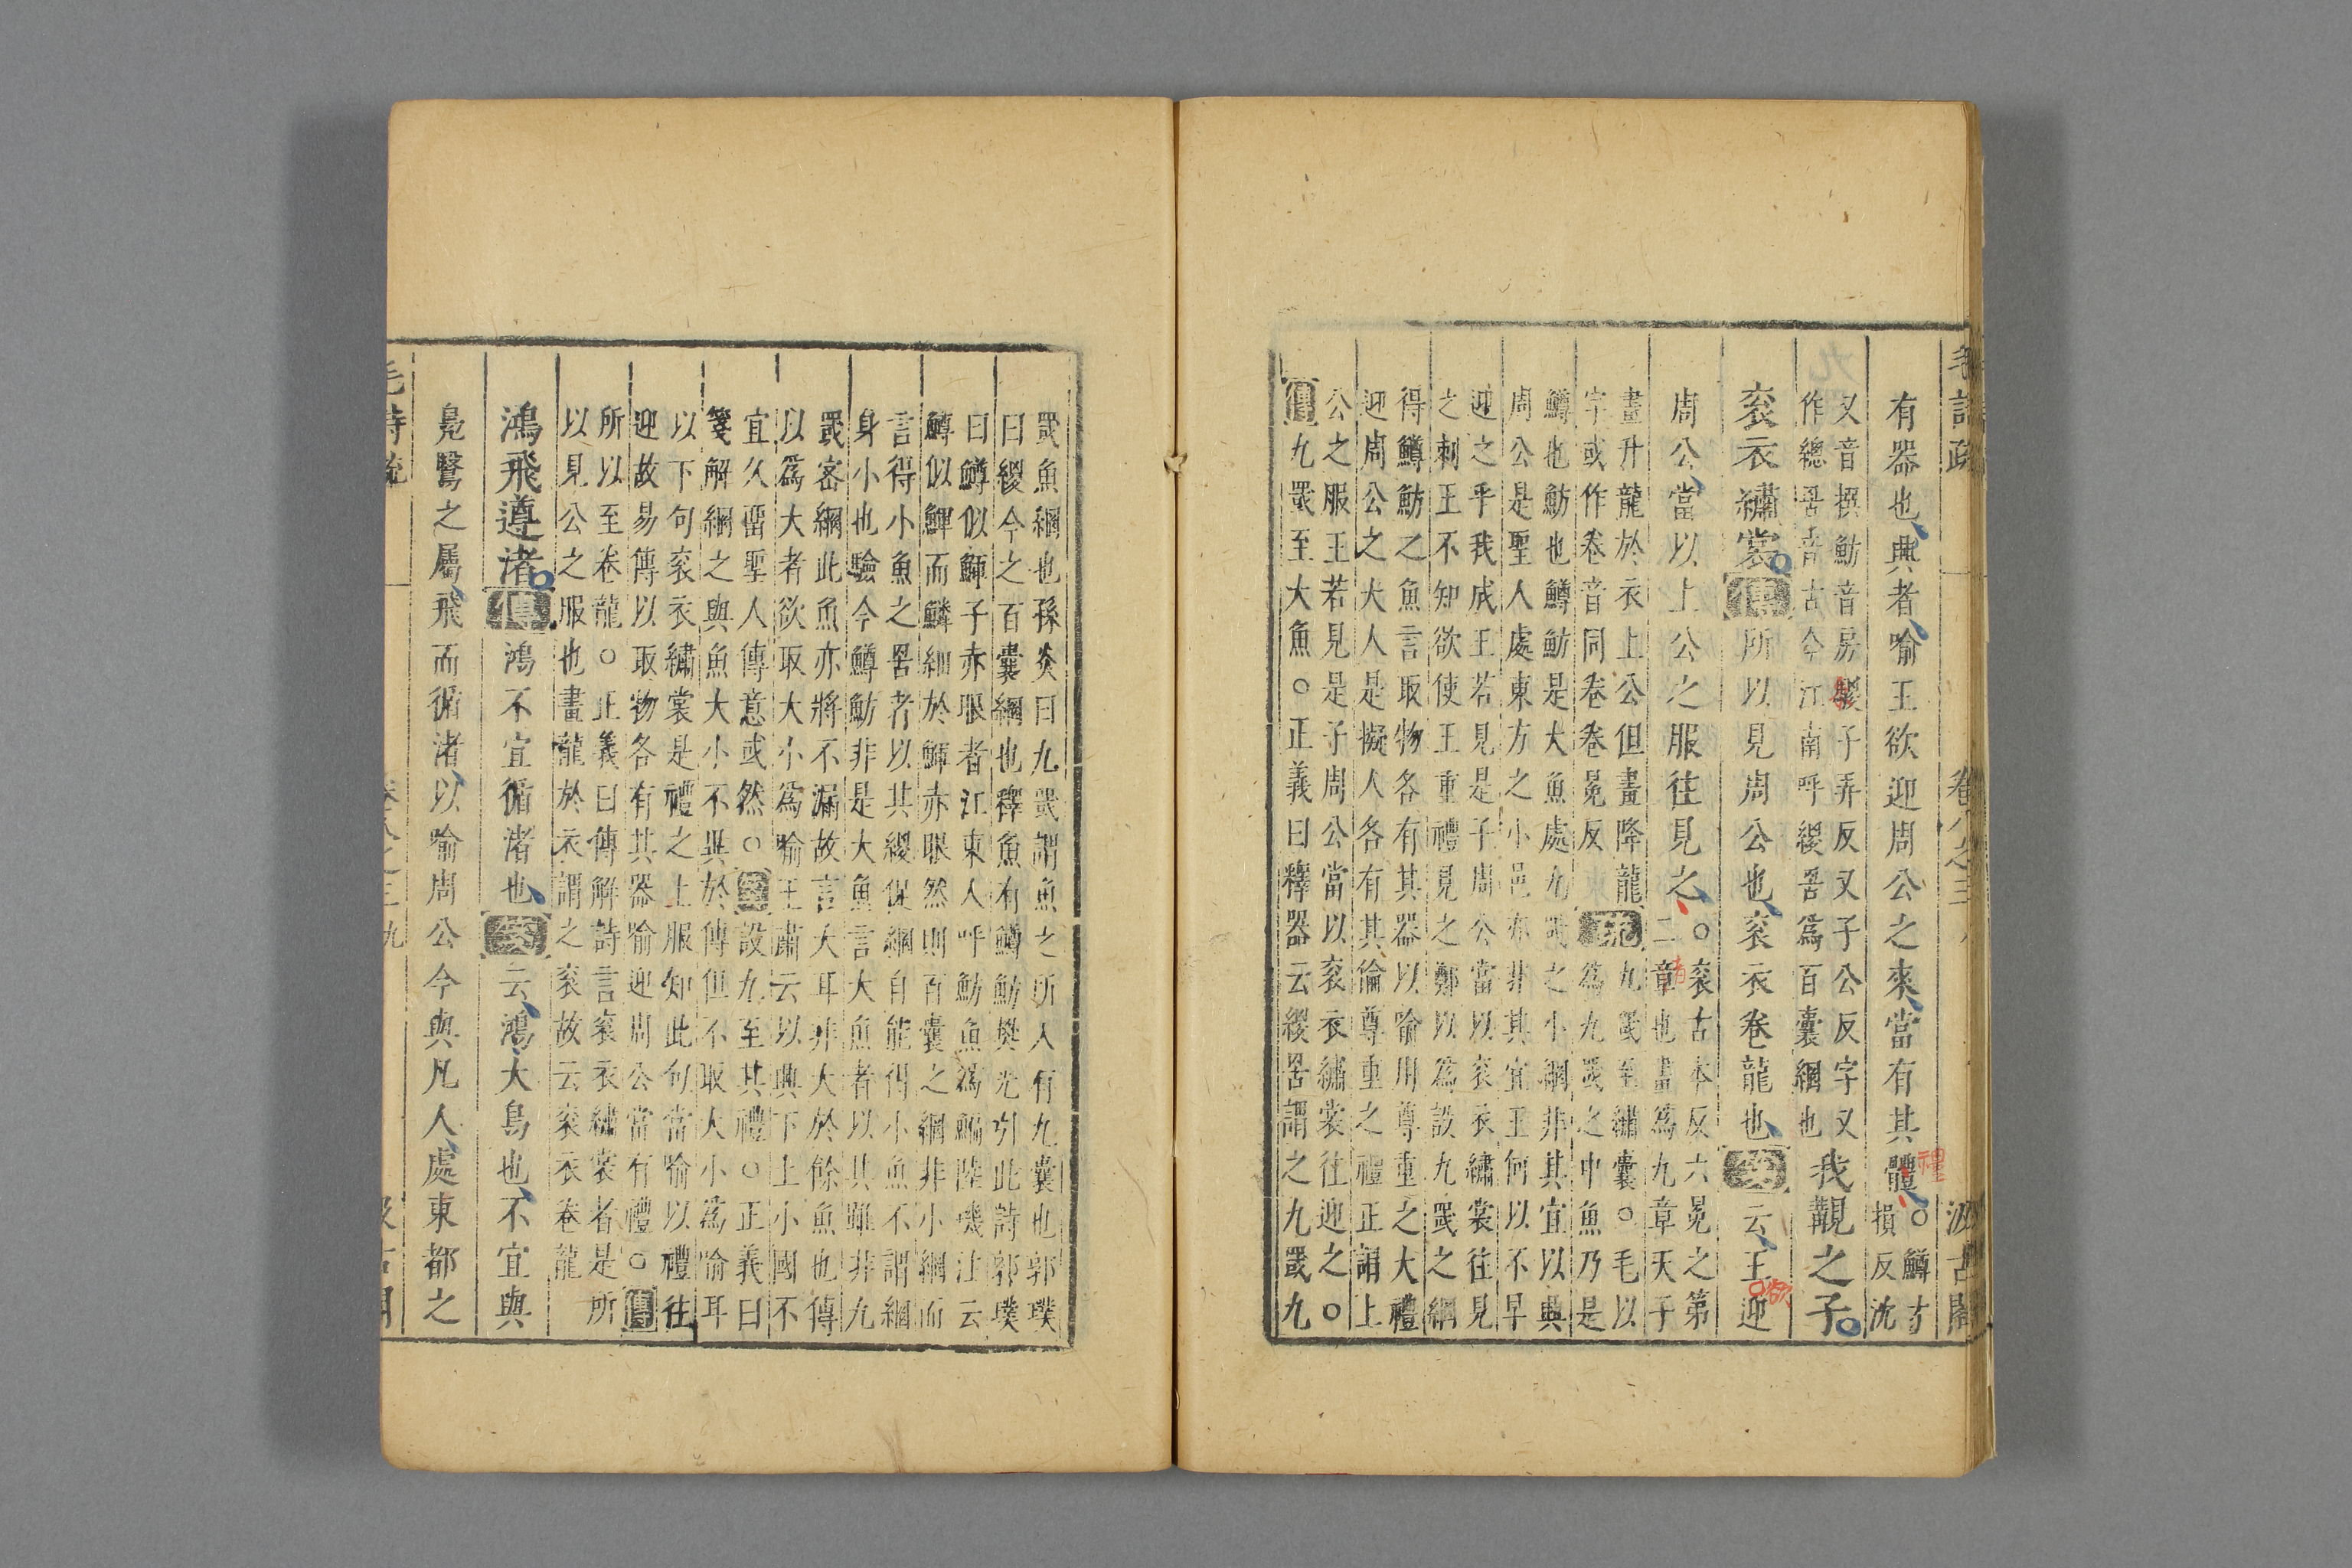 毛詩疏 卷八之三 八 汲古閣
有器也興者喻王欲迎周公之來當有其體○鱒才
損反沈
又音撰魴音房緵子弄反又子公反字又
作總罟音古今江南呼緵罟爲百囊網也
我覯之子
袞衣繡裳傳所以見周公也袞衣卷龍也箋云王迎
周公當以上公之服往見之○袞古本反六冕之第
二章也畫爲九章天子
畫升龍於衣上公但畫降龍
字或作卷音同卷卷冕反
疏九罭至繡裳○毛以
爲九罭之中魚乃是
鱒也魴也鱒魴是大魚處九罭之小網非其宜以興
周公是聖人處東方之小邑亦非其宜王何以不早
迎之乎我成王若見是子周公當以袞衣繡裳往見
之刺王不知欲使王重禮見之鄭以爲設九罭之網
得鱒魴之魚言取物各有其器以喻用尊重之大禮
迎周公之大人是擬人各有其倫尊重之禮正謂上
公之服王若見是子周公當以袞衣繡裳往迎之○
傳九罭至大魚○正義曰釋器云緵罟謂之九罭九
罭魚網也孫炎曰九罭謂魚之所入有九囊也郭璞
曰緵今之百囊網也釋魚有鱒魴樊光引此詩郭璞
曰鱒似鯶子赤眼者江東人呼魴魚爲鯿陸璣疏云
鱒似鯶而鱗細於鯶赤眼然則百囊之網非小網而
言得小魚之罟者以其緵促網目能得小魚不謂網
身小也驗今鱒魴非是大魚言大魚者以其雖非九
罭密網此魚亦將不漏故言大耳非大於餘魚也傳
以爲大者欲取大小爲喻王肅云以興下土小國不
宜久留聖人傳意或然○箋設九至其禮○正義曰
箋解網之與魚大小不異於傳但不取大小爲喻耳
以下句袞衣繡裳是禮之上服知此句當喻以禮往
迎故易傳以取物各有其器喻迎周公當有禮○傳
所以至卷龍○正義曰傳解詩言袞衣繡裳者是所
以見公之服也畫龍於衣謂之袞故云袞衣卷龍
鴻飛遵渚傳鴻不宜循渚也箋云鴻大鳥也不宜與
鳧鷖之屬飛而循渚以喻周公今與凡人處東都之